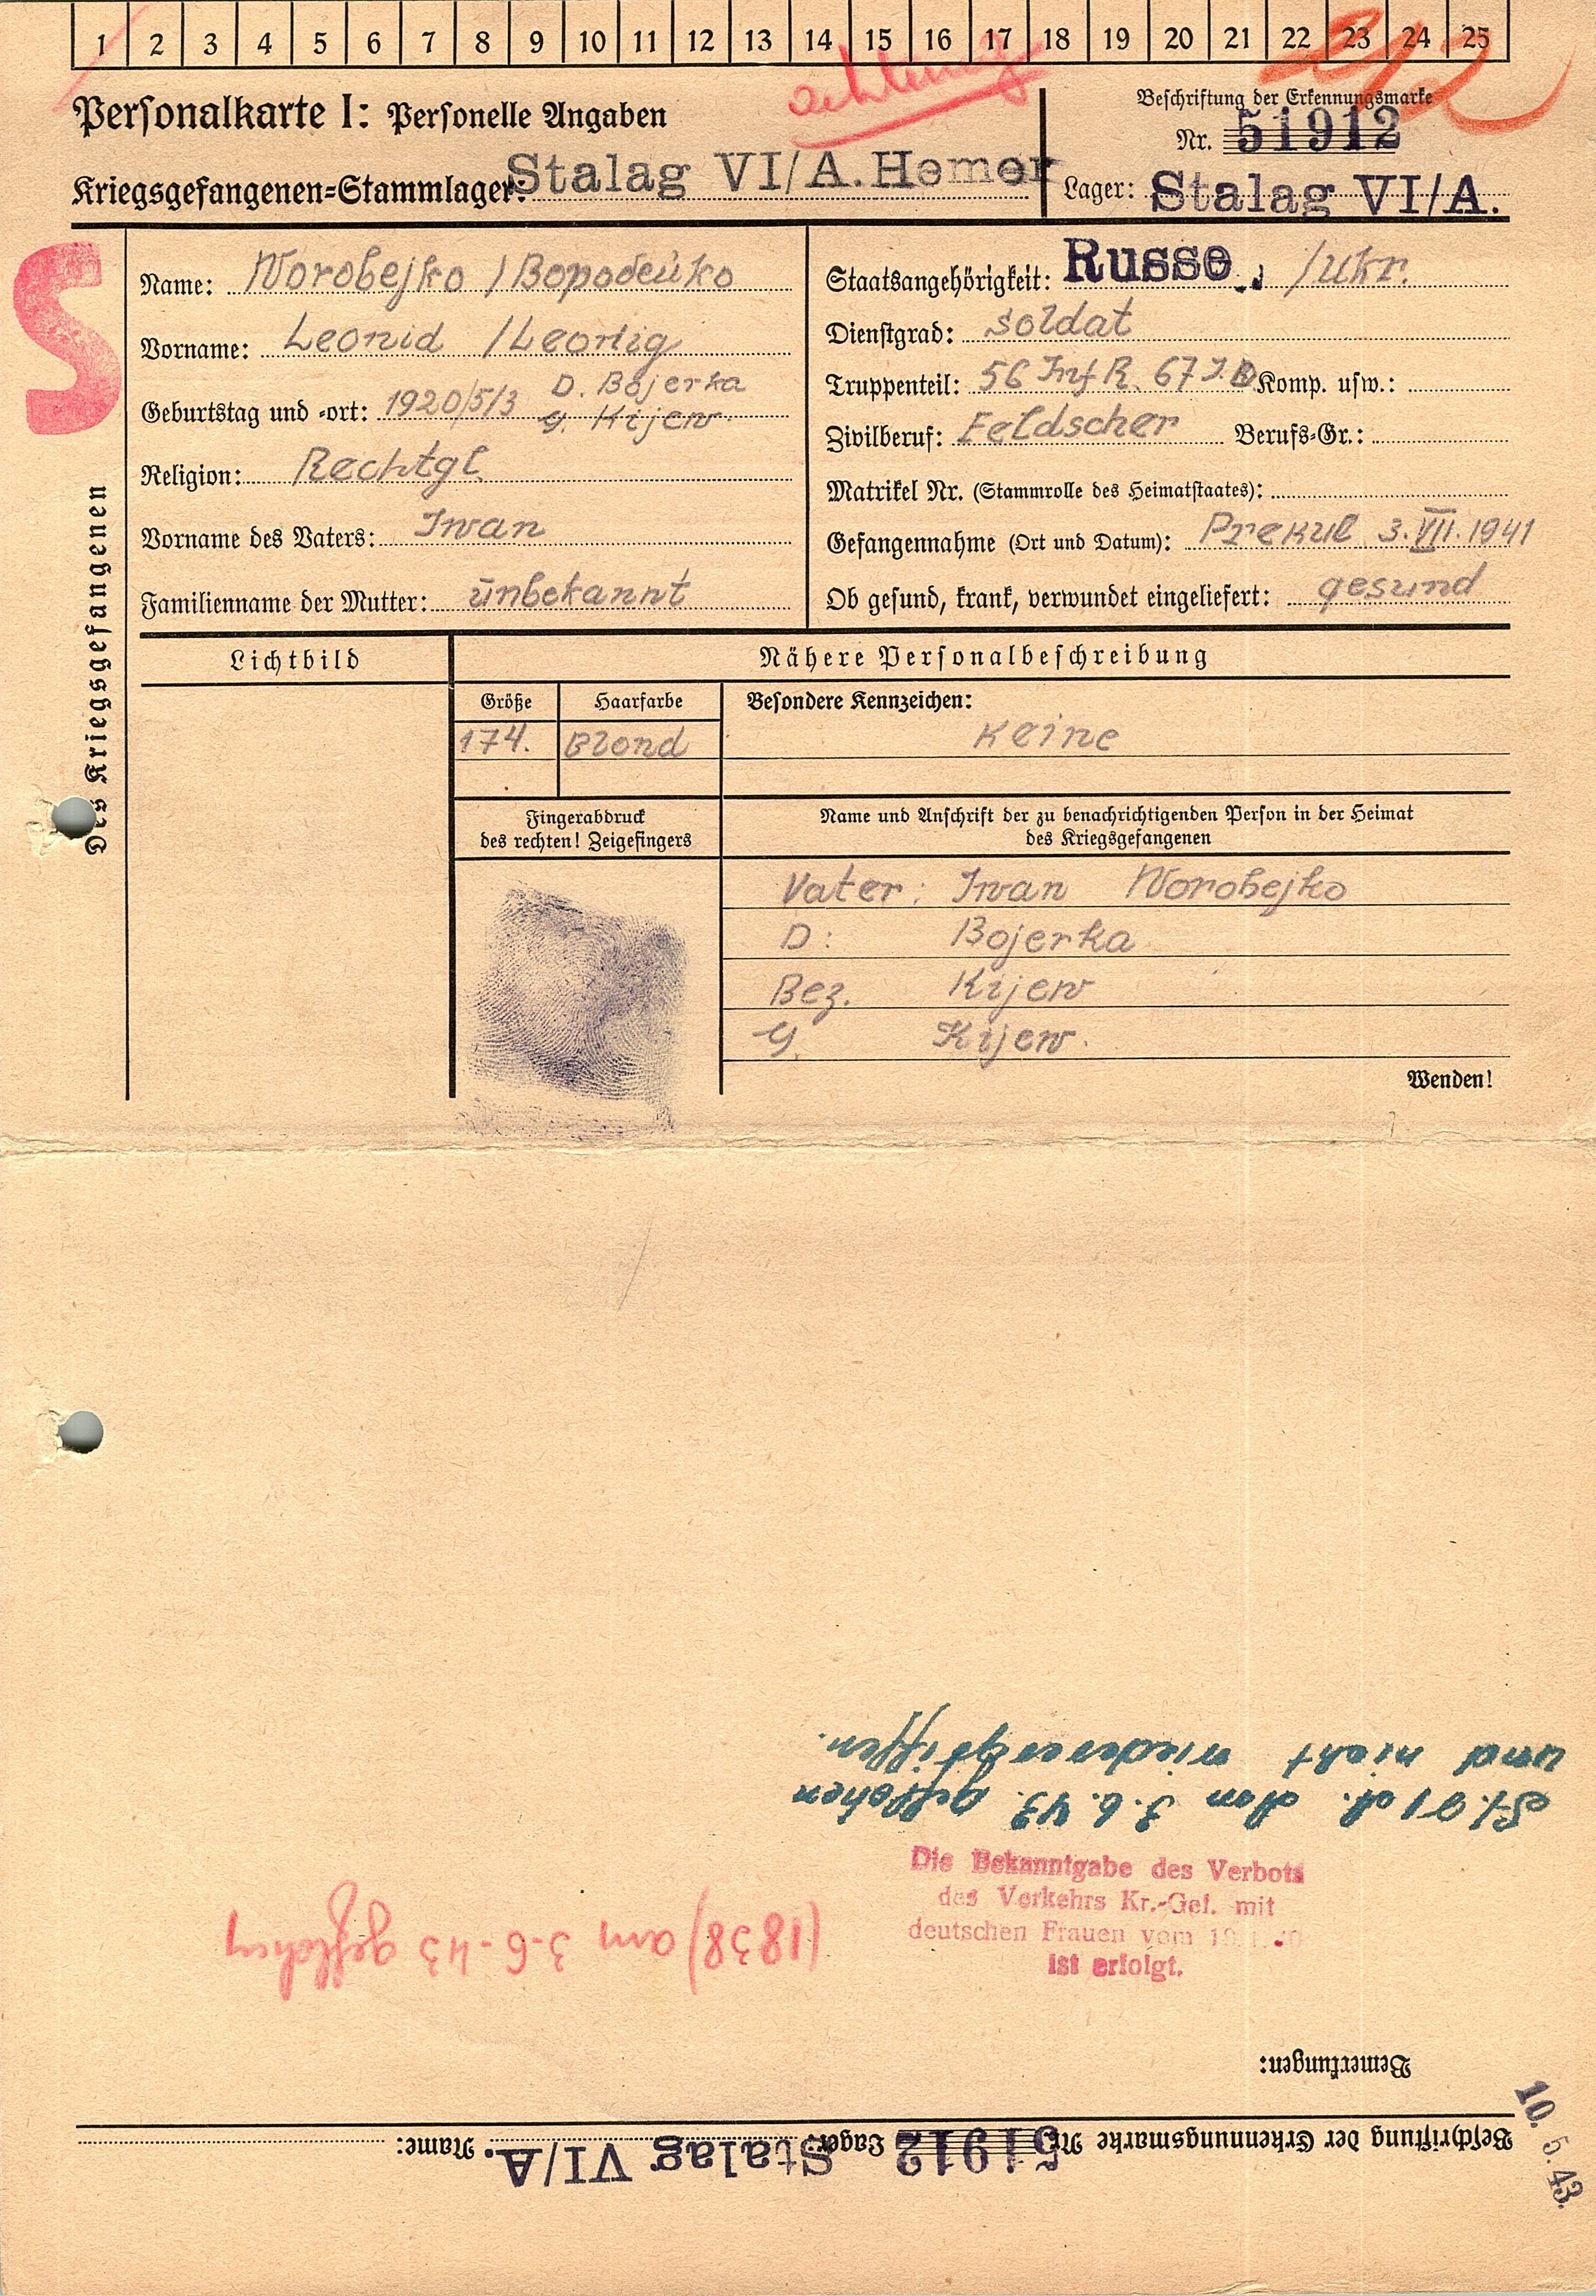 1 2 3 4 5 6 7 8 9 10 11 12 13 14 15 16 17 18 19 20 21 22 23 24 25
Personalkarte I: Personelle Angaben
Kriegsgefangenen=Stammlager: Stalag VI/A. Hemer
Beschriftung der Erkennungsmarke
Nr. 51912
Lager: Stalag VI/A.
S
Des Kriegsgefangenen
Name: Worobejko / Воробейко
Vorname: Leonid /
Geburtstag und =ort: 1920/5/3 D. Bojerka
G. Kijew.
Religion: Rechtgl.
Vorname des Vaters: Iwan
Familienname der Mutter: unbekannt
Staatsangehörigkeit: Russe. /Ukr.
Dienstgrad: Soldat
Truppenteil: 56 Inf R. 67 I.D Komp. usw.:
Zivilberuf: Feldscher Berufs=Gr.:
Matrikel Nr. (Stammrolle des Heimatstaates):
Gefangennahme (Ort und Datum): Prekul 3.VII.1941
Ob gesund, krank, verwundet eingeliefert: gesund
Lichtbild
Nähere Personalbeschreibung
Größe Haarfarbe Besondere Kennzeichen:
174. Blond Keine
Fingerabdruck
des rechten! Zeigefingers
Name und Anschrift der zu benachrichtigenden Person in der Heimat
des Kriegsgefangenen
Vater: Iwan Worobejko
D: Bojerka
Bez. Kijew
G. Kijew.
Wenden!
Beschriftung der Erkennungsmarke Nr. 51912 Lager: Stalag VI/A. Name:
10. 5. 43.
Bemerkungen:
Die Bekanntgabe des Verbots
des Verkehrs Kr.-Gef. mit
deutschen Frauen vom
ist erfolgt.
(1838) am 3-6-43 geflohen
3.6.43. geflohen
und nicht wiederergriffen.